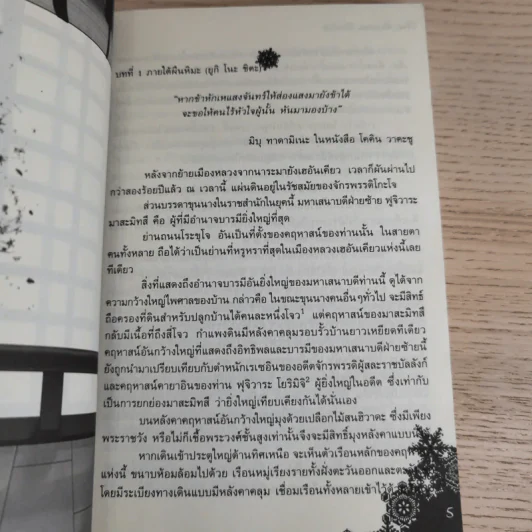 บทที่ 1 ภายใต้ผืนหิมะ (ยูกิ โนะ ชิตะ)
"หากข้าหักเหแสงจันทร์ให้ส่องแสงมายังข้าได้
จะขอให้คนไร้หัวใจผู้นั้น หันมามองบ้าง"
มิบุ ทาดามิเนะ ในหนังสือ โคคิน วาคะชู
หลังจากย้ายเมืองหลวงจากนาระมายังเฮอันเคียว เวลาก็ผันผ่านไป
กว่าสองร้อยปีแล้ว ณ เวลานี้ แผ่นดินอยู่ในรัชสมัยของจักรพรรดิโกะโจ
ส่วนบรรดาขุนนางในราชสำนักในยุคนี้ มหาเสนาบดีฝ่ายซ้าย ฟุจิวาระ
มาสะมิทสึ คือ ผู้ที่มีอำนาจบารมียิ่งใหญ่ที่สุด
ย่านถนนโระขุโจ อันเป็นที่ตั้งของคฤหาสน์ของท่านนั้น ในสายตา
คนทั้งหลาย ถือได้ว่าเป็นย่านที่หรูหราที่สุดในเมืองหลวงเฮอันเคียวแห่งนี้เลย
ทีเดียว
สิ่งที่แสดงถึงอำนาจบารมีอันยิ่งใหญ่ของมหาเสนาบดีท่านนี้ ดูได้จาก
ความกว้างใหญ่ไพศาลของบ้าน กล่าวคือ ในขณะขุนนางคนอื่นๆทั่วไป จะมีสิทธิ์
ถือครองที่ดินสำหรับปลูกบ้านได้คนละหนึ่งโจว¹ แต่คฤหาสน์ของมาสะมิทสึ
กลับมีเนื้อที่ถึงสี่โจว กำแพงดินมีหลังคาคลุมรอบรั้วบ้านยาวเหยียดทีเดียว
คฤหาสน์อันกว้างใหญ่ที่แสดงถึงอิทธิพลและบารมีของมหาเสนาบดีฝ่ายซ้ายนี้
ยังถูกนำมาเปรียบเทียบกับตำหนักเรเซอินของอดีตจักรพรรดิผู้สละราชบัลลังก์
และคฤหาสน์คายาอินของท่าน ฟุจิวาระ โยริมิจิ² ผู้ยิ่งใหญ่ในอดีต ซึ่งเท่ากับ
เป็นการยกย่องมาสะมิทสึ ว่ายิ่งใหญ่เทียบเคียงกันได้นั่นเอง
บนหลังคาคฤหาสน์อันกว้างใหญ่มุงด้วยเปลือกไม้สนฮิวาดะ ซึ่งมีเพียง
พระราชวัง หรือไม่ก็เชื้อพระวงศ์ชั้นสูงเท่านั้นจึงจะมีสิทธิ์มุงหลังคาแบบนี้
หากเดินเข้าประตูใหญ่ด้านทิศเหนือ จะเห็นตัวเรือนหลักของคฤห
แห่งนี้ ขนาบห้อมล้อมไปด้วย เรือนหมู่เรียงรายทั้งฝั่งตะวันออกและตะ
โดยมีระเบียงทางเดินแบบมีหลังคาคลุม เชื่อมเรือนทั้งหลายเข้าไว้ด้
5